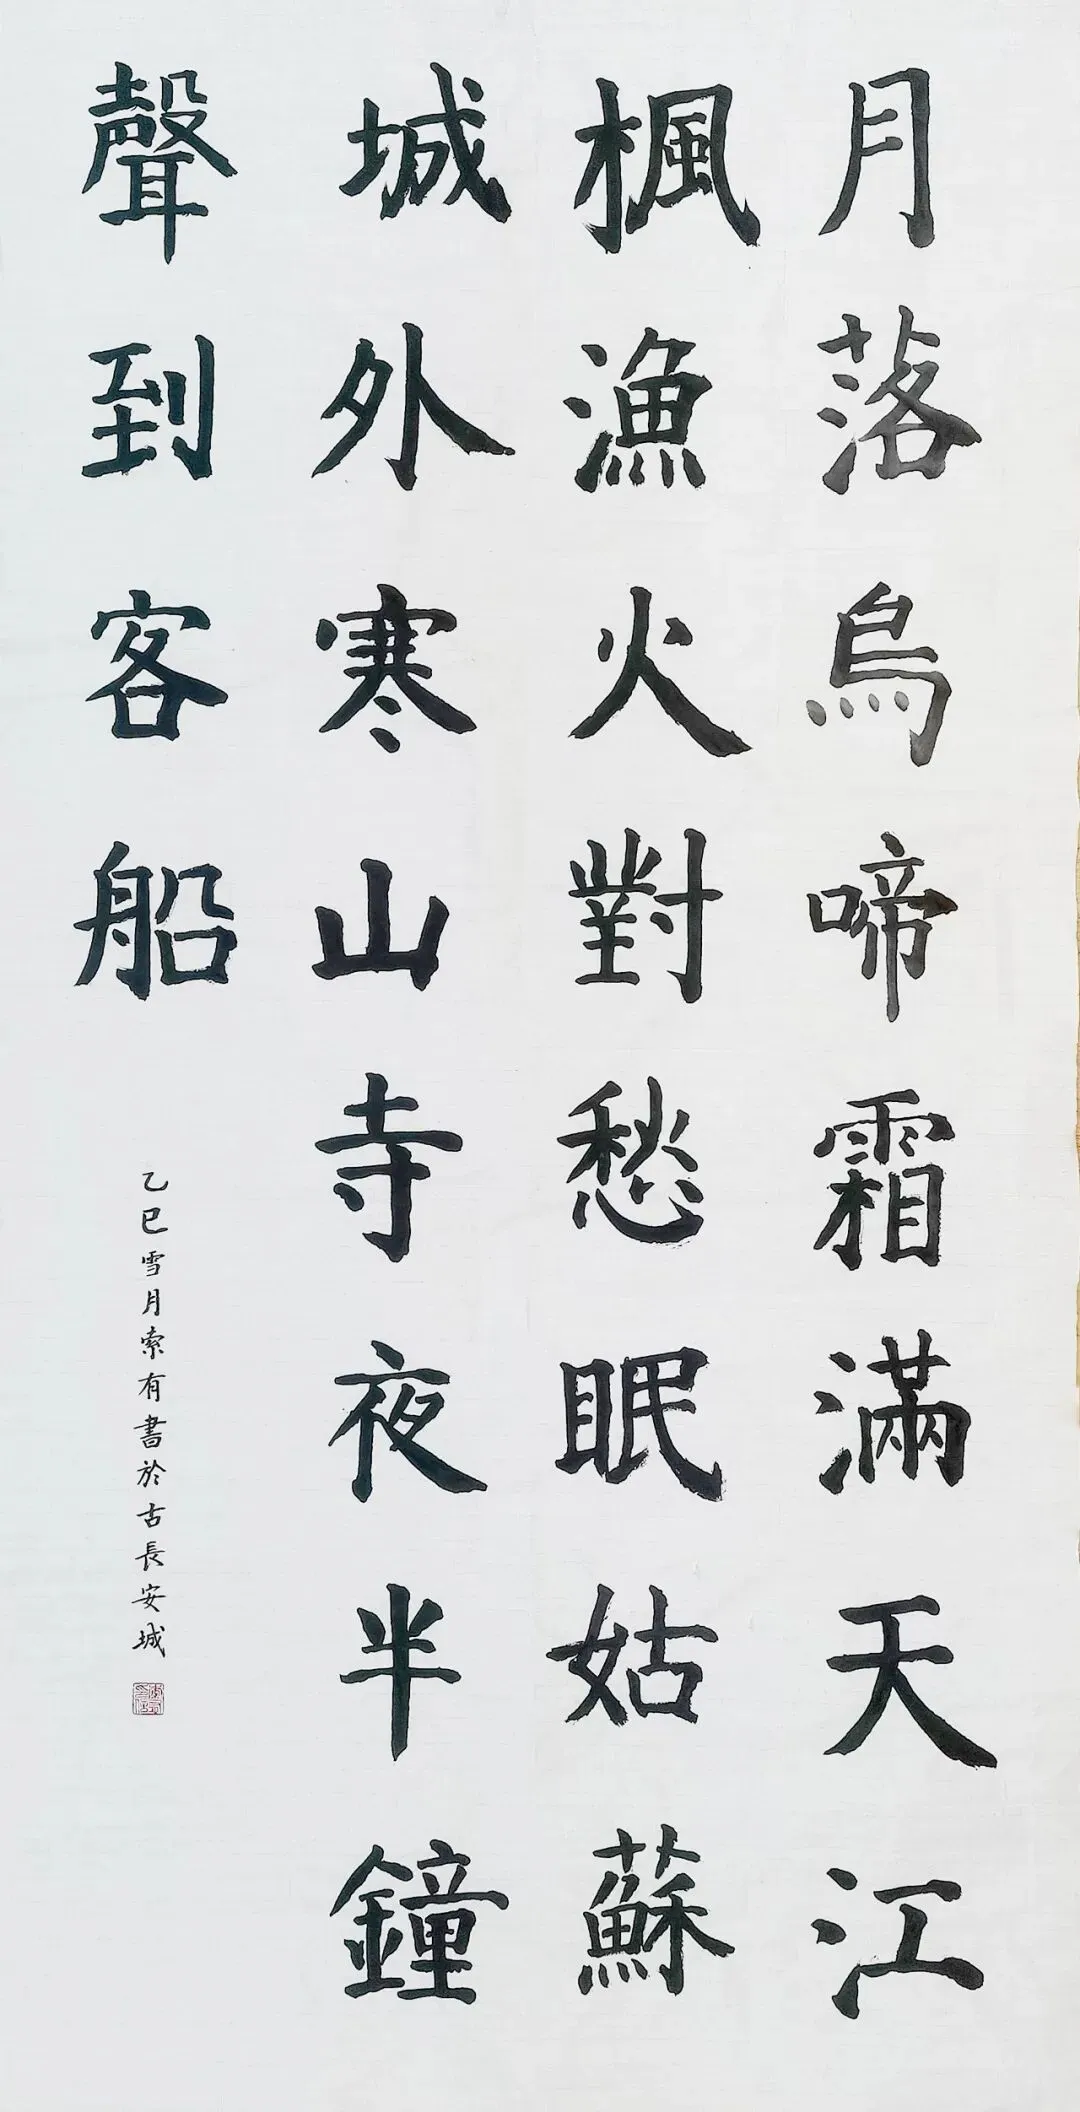 月落烏啼霜滿天江
楓漁火對愁眠姑蘇
城外寒山寺夜半鐘
聲到客船
乙巳雪月索有書於古長安城